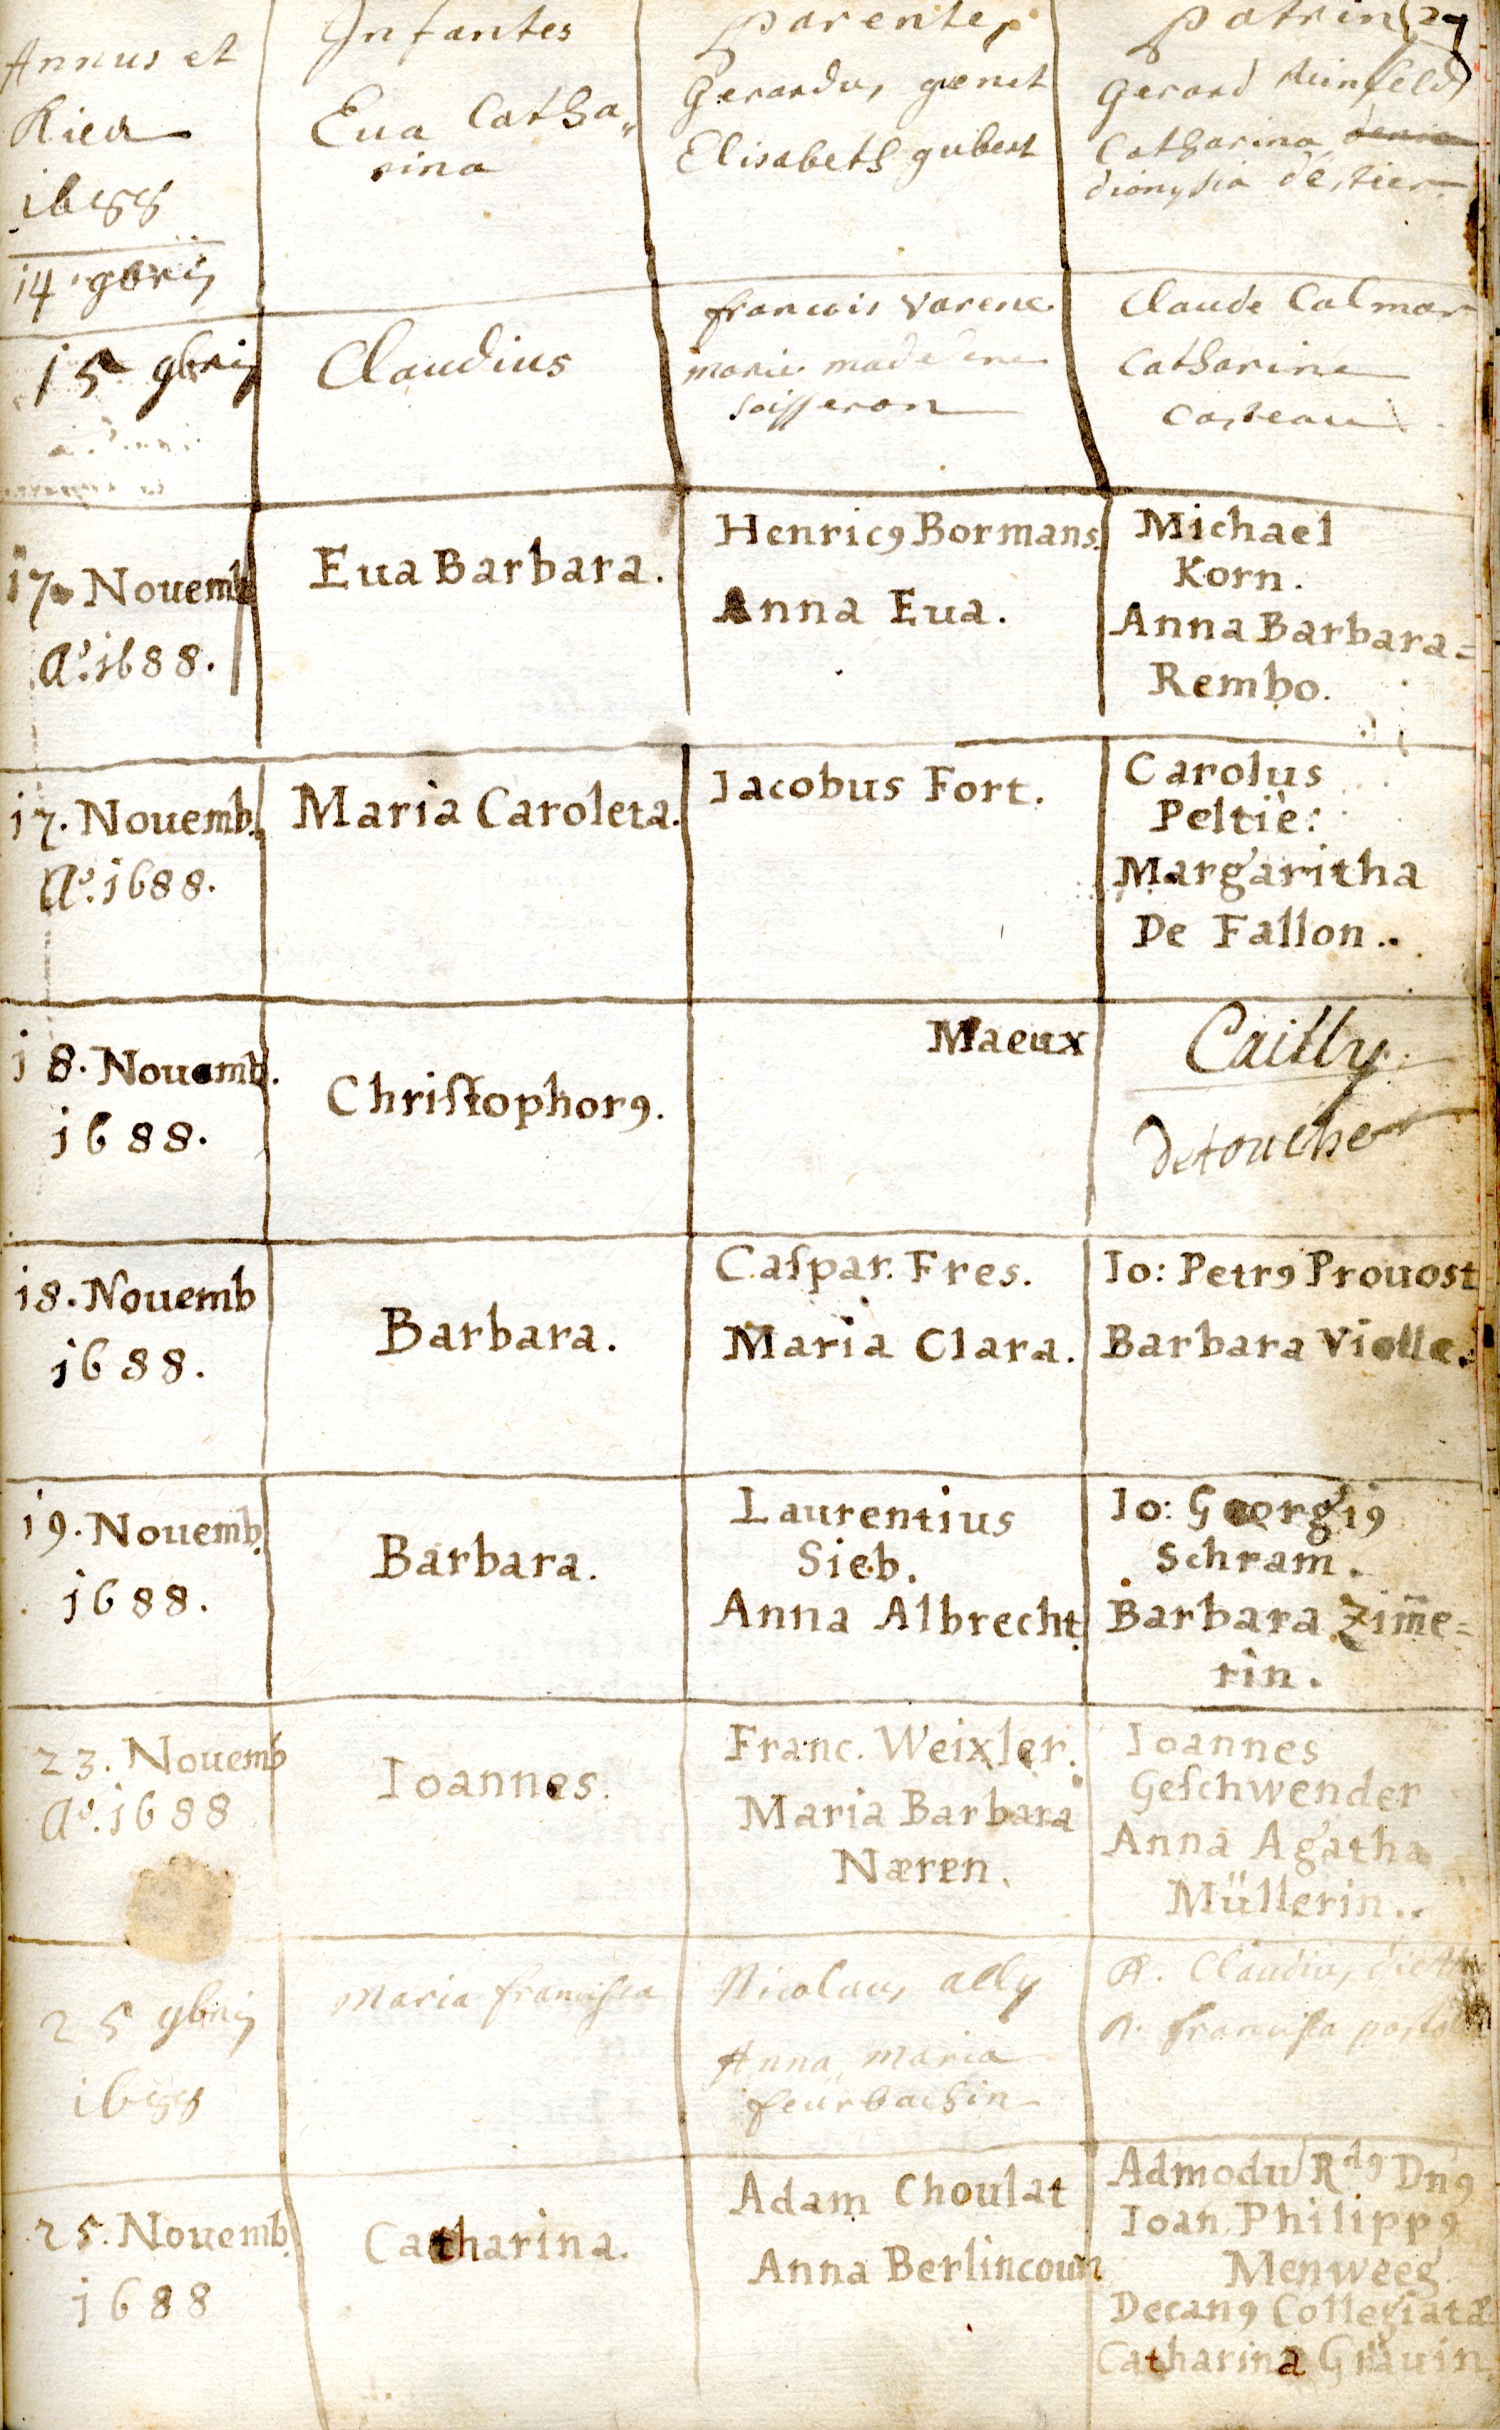 Annus et
Dies
1688
14 9bris
Infantes
Eua Catha„
rina
parentes
Gerardus genet
Elisabeth gubert
patrini 29
Gerard
Catharina
dionysia
15 9bris
Claudius
francois Varenc
marie madelene
soisseron
Claude Calmar
Catharine
Casteau
17. Nouemb
Aº. 1688.
Eua Barbara.
Henricꝰ Bormans.
Anna Eua.
Michael
Korn.
Anna Barbara=
Rembo.
17. Nouemb.
Aº. 1688.
Maria Caroleta.
Iacobus Fort.
Carolus
Peltiè:
Margaritha
De Fallon..
18. Nouemb.
1688.
Christophorꝰ.
Maeux
Cailly
detouche
18. Nouemb
1688.
Barbara.
Caspar. Fres.
Maria Clara.
Io: Petrꝰ Prouost
Barbara Violle.
19. Nouemb.
1688.
Barbara.
Laurentius
Sieb.
Anna Albrecht.
Io: Georgiꝰ
Schram.
Barbara Zim̄e=
rin.
23. Nouemb
Aº. 1688
Ioannes.
Franc. Weixler.
Maria Barbara
Næren.
Ioannes
Geschwender
Anna Agatha
Müllerin..
25 9bris
1688
Maria francisca
Nicolaus ally
Anna maria
feurbachin
R. Claudius
R. francisca
25. Nouemb.
1688
Catharina.
Adam Choulat
Anna Berlincourt
Admodū Rdꝰ Dnꝰ
Ioan Philippꝰ
Menweeg
Decanꝰ Collegiatæ
Catharina Gräuin